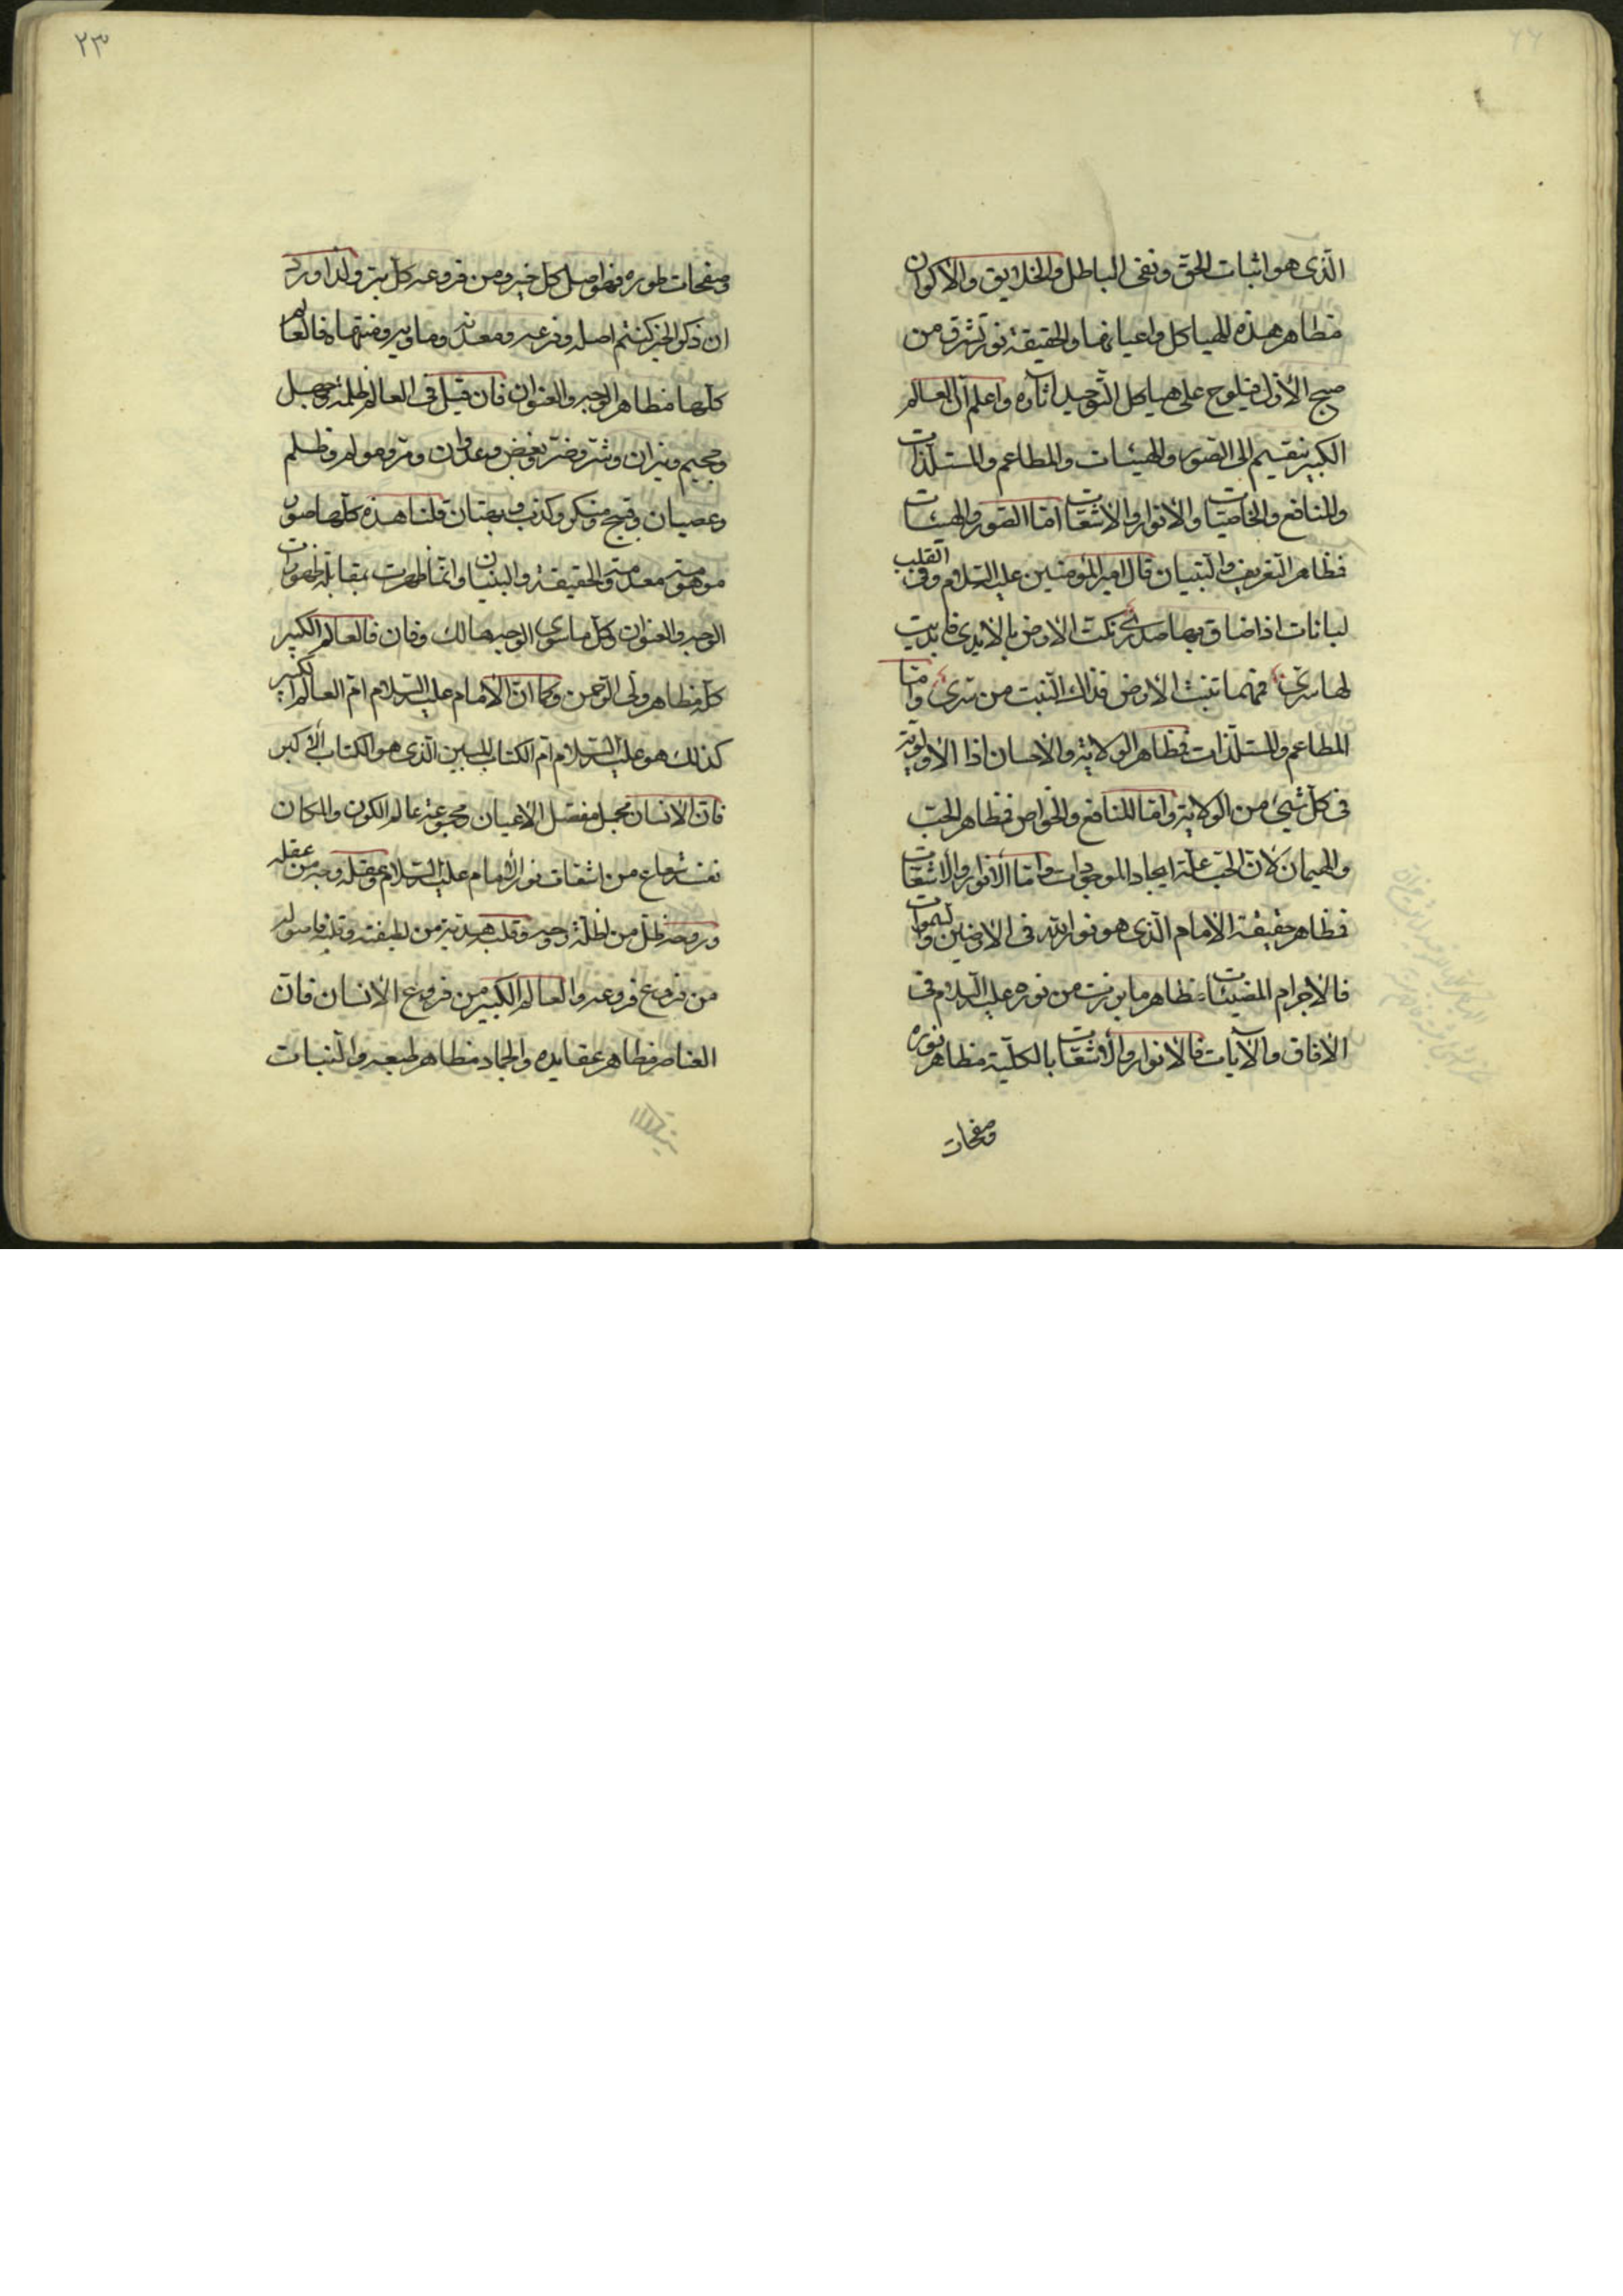 الّذی هو اثبات الحقّ ونفی الباطل والخلایق والاکوان
مظاهر هذه الهیاکل واعیانها والحقیقة نور تشرق من
صبح الازل فیلوح علی هیاکل التّوحید آثاره واعلم انّ العالم
الکبیر ینقسم الی الصّور والهیئات والمطاعم والمستلذّات
والمنافع والخاصّیّات والانوار والاشعّات امّا الصّور والهیئات
فظاهر التّعریف والتّبیان قال امیر المؤمنین علیه السّلام وفی القلب
لبانات اذا ضاق بها صدری نکتّ الارض بالایدی فابدیت
لها سرّی فمهما تنبت الارض فذاک النّبت من سرّی وامّا
المطاعم والمستلذّات فمظاهر الولایة والاحسان اذا الاولویّة
فی کلّ شیئ من الولایة وامّا المنافع والخواص فمظاهر الحبّ
والهیمان لانّ الحبّ علّة ایجاد الموجودات وامّا الانوار والاشعّات
فظاهر حقیقة الامام الّذی هو نور الله فی الارضین والسّموات
فالاجرام المضیئات مظاهر ما برزت من نوره علیه السّلام فی
الافاق والآیات فالانوار والاشعّات بالکلّیّة مظاهر نوره
وصفحات
۲۳
وصفحات طوره فهو اصل کلّ خیر ومن فروعه کلّ بر ولذا ورد
ان ذکر الخیر کنتم اصله وفرعه ومعدنه وماویه ومنتهاه فالعالم
کلّها مظاهر الوجه والعنوان فان قیل فی العالم ظلمة وجهل
وجحیم ونیران وشرّ وضرّ وبغض وعدوان و وظلم
وعصیان وقبیح ومنکر وکذب وبهتان قلنا هذه کلّها صور
موهومة معدومة والحقیقة والبنیان وانّما ظهرت بمقابلة ظهورات
الوجه والعنوان وکلّ ما سوی الوجه هالک وفان فالعالم الکبیر
کلّه مظاهر ولی الرّحمن وکما انّ الامام علیه السّلام امّ العالم الکبیر
کذلک هو علیه السّلام امّ الکتاب المبین الّذی هو الکتاب الاکبر
فانّ الانسان مجمل مفصّل الاعیان مجموعة عالم الکون والمکان
نفسه شعاع من اشعّات نور الامام علیه السّلام وعقله وجه من عقله
وروحه ظلّ من اظلّة روحه وقلبه هدیّة من لطیفته وقلبه فاصوله
من فروع فروعه والعالم الکبیر من فروع الانسان فانّ
العناصر مظاهر عقایده والجماد مظاهر طبعه والنّبات